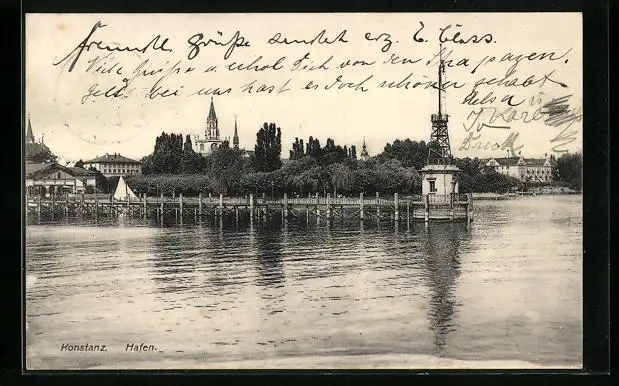 freundl. Grüße sendet erg. E. Class.
Viele Grüße u. erhol Dich von den Strapazen.
Gelt bei uns hast es doch schöner gehabt
Konstanz. Hafen.